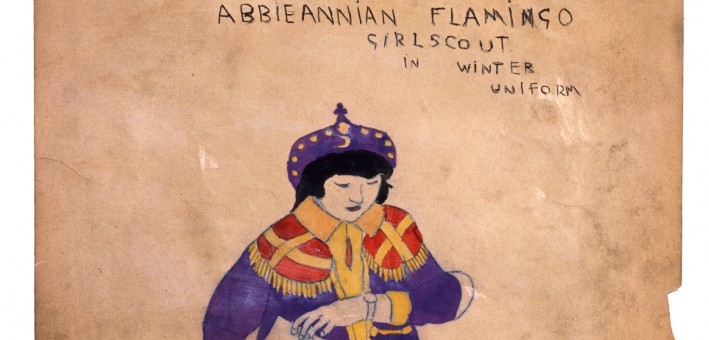 ABBIEANNIAN FLAMINGO
GIRLSCOUT
IN WINTER
UNIFORM